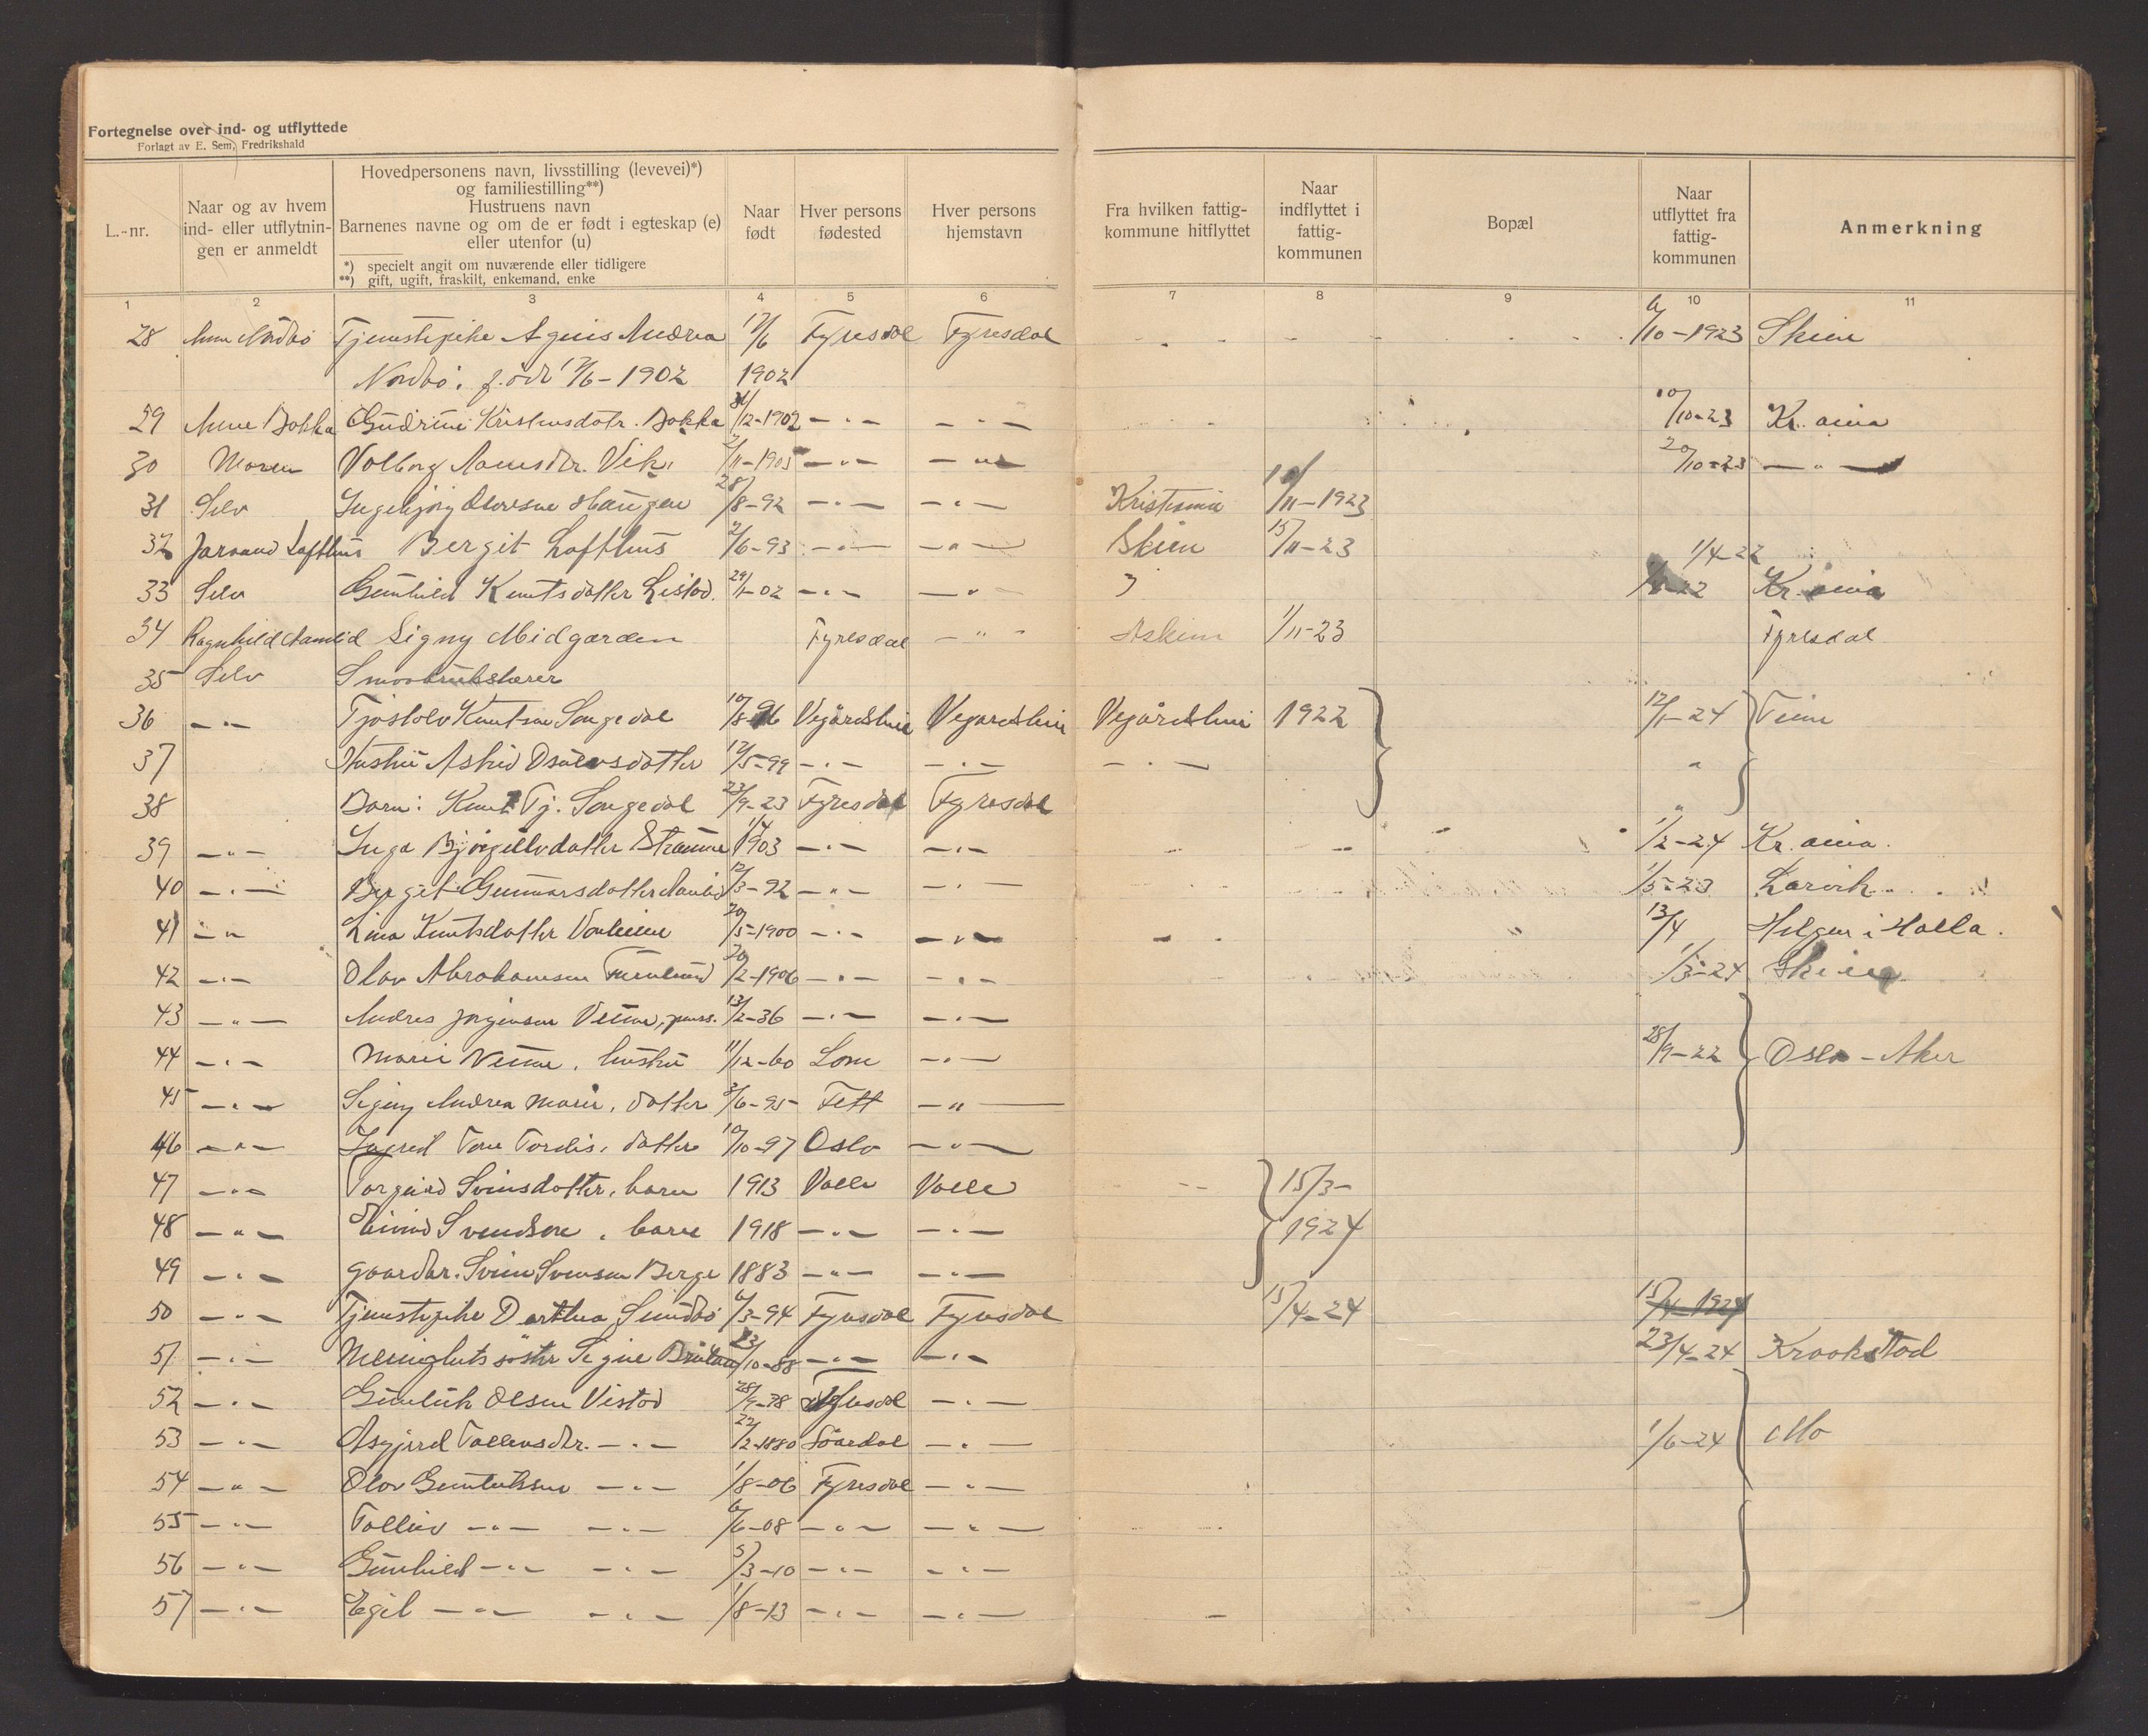 Fortegnelse over ind- og utflyttede
Forlagt av E. Sem, Fredrikshald
L.-nr.
Naar og av hvem ind- eller utflytnin- gen er anmeldt
Hovedpersonens navn, livsstilling (levevei)*)
og familiestilling**)
Hustruens navn
Barnenes navne og om de er født i egteskap (e)
eller utenfor (u)
*) specielt angit om nuværende eller tidligere
**) gift, ugift, fraskilt, enkemand, enke
Naar født
Hver persons fødested
Hver persons hjemstavn
Fra hvilken fattig- kommune hitflyttet
Naar indflyttet i fattig- kommunen
Bopæl
Naar utflyttet fra fattig- kommunen
Anmerkning
1 2 3 4 5 6 7 8 9 10 11
28 Tjenestepike Agnis Andrea 17/6 Fyresdal Fyresdal 6/10-1923 Skien
Nordbö. född 17/6-1902 1902
29 Anne Bokka Gudrun Kristensdatr. Bokka 31/12-1902 -"- -"- 10/10-23 Kr.ania
30 Moren Valborg Vik. 2/11-1905 -"- -"- 20/10-23 -"-
31 Selv Haugen 28/8-92 -"- -"- Kristiania 10/11-1923
32 Jaraand Lofthus Bergit Lofthus 2/6-93 -"- -"- Skien 15/11-23
1/4-22
33 Selv Gunhild Knutsdatter Listod. 29/1-02 -"- -"- Kr.ania
34 Ragnhild Aamlid Signy Midgarden Fyresdal -"- Askim 1/11-23 Fyresdal
35 Selv Smaabrukslærer
36 -"- Tjöstolv Knutsen Songedal 10/8-96 Vegårdshei Vegardshei Vegårdshei 1922 12/1-24
37 Hustru Astrid 12/5-99 -"- -"- -"- "
38 Barn: Knut Tj. Songedal 23/9-23 Fyresdal Fyresdal "
39 -"- Inga 1903 -"- -"- 1/2-24 Kr.ania.
40 -"- Berget Gunnarsdatter 12/3-92 -"- -"- 1/5-23 Larvik
41 -"- Lina Knutsdatter 20/5-1900 -"- -"- 13/4 Helgen i Holla.
42 -"- Olav Abrahamsen 20/2-1906 -"- -"- -24 Skien
43 -"- Andres Jörgensen Veum, pens. 13/2-36 -"- -"-
44 -"- Marie Veum, hustru 11/12-60 Lom -"- 28/9-22 Oslo - Aker
45 -"- Signy Andrea Marie, datter 3/6-95 Fett -"-
46 -"- Ingrid Tone Tordis, datter 10/10-97 Oslo -"-
47 -"- Svinsdatter, barn 1913 Valle Valle 15/3-
48 -"- Eivind Svendsen, barn 1918 -"- -"- 1924
49 -"- gaardbr. Svein Svensen Berge 1883 -"- -"-
50 -"- Tjenestepike Dorthea Sundbö 6/3-94 Fyresdal Fyresdal 15/4-24 15/4-1924
51 -"- Menighets söster Signe 23/10-88 -"- -"- 23/4-24 Kraakstad
52 -"- Gunleik Olsen Vistad 28/9-78 -"-
53 -"- Asgjerd Tallevsdtr. -"- 22/2-1880 -"- 1/6-24 Mo
54 -"- Olav Gunleiksen -"- 1/8-06 Fyresdal -"-
55 -"- Talleiv -"- -"- 6/6-08 -"- -"-
56 -"- Gunhild -"- -"- 5/3-10 -"- -"-
57 -"- Egil -"- -"- 1/8-13 -"- -"-